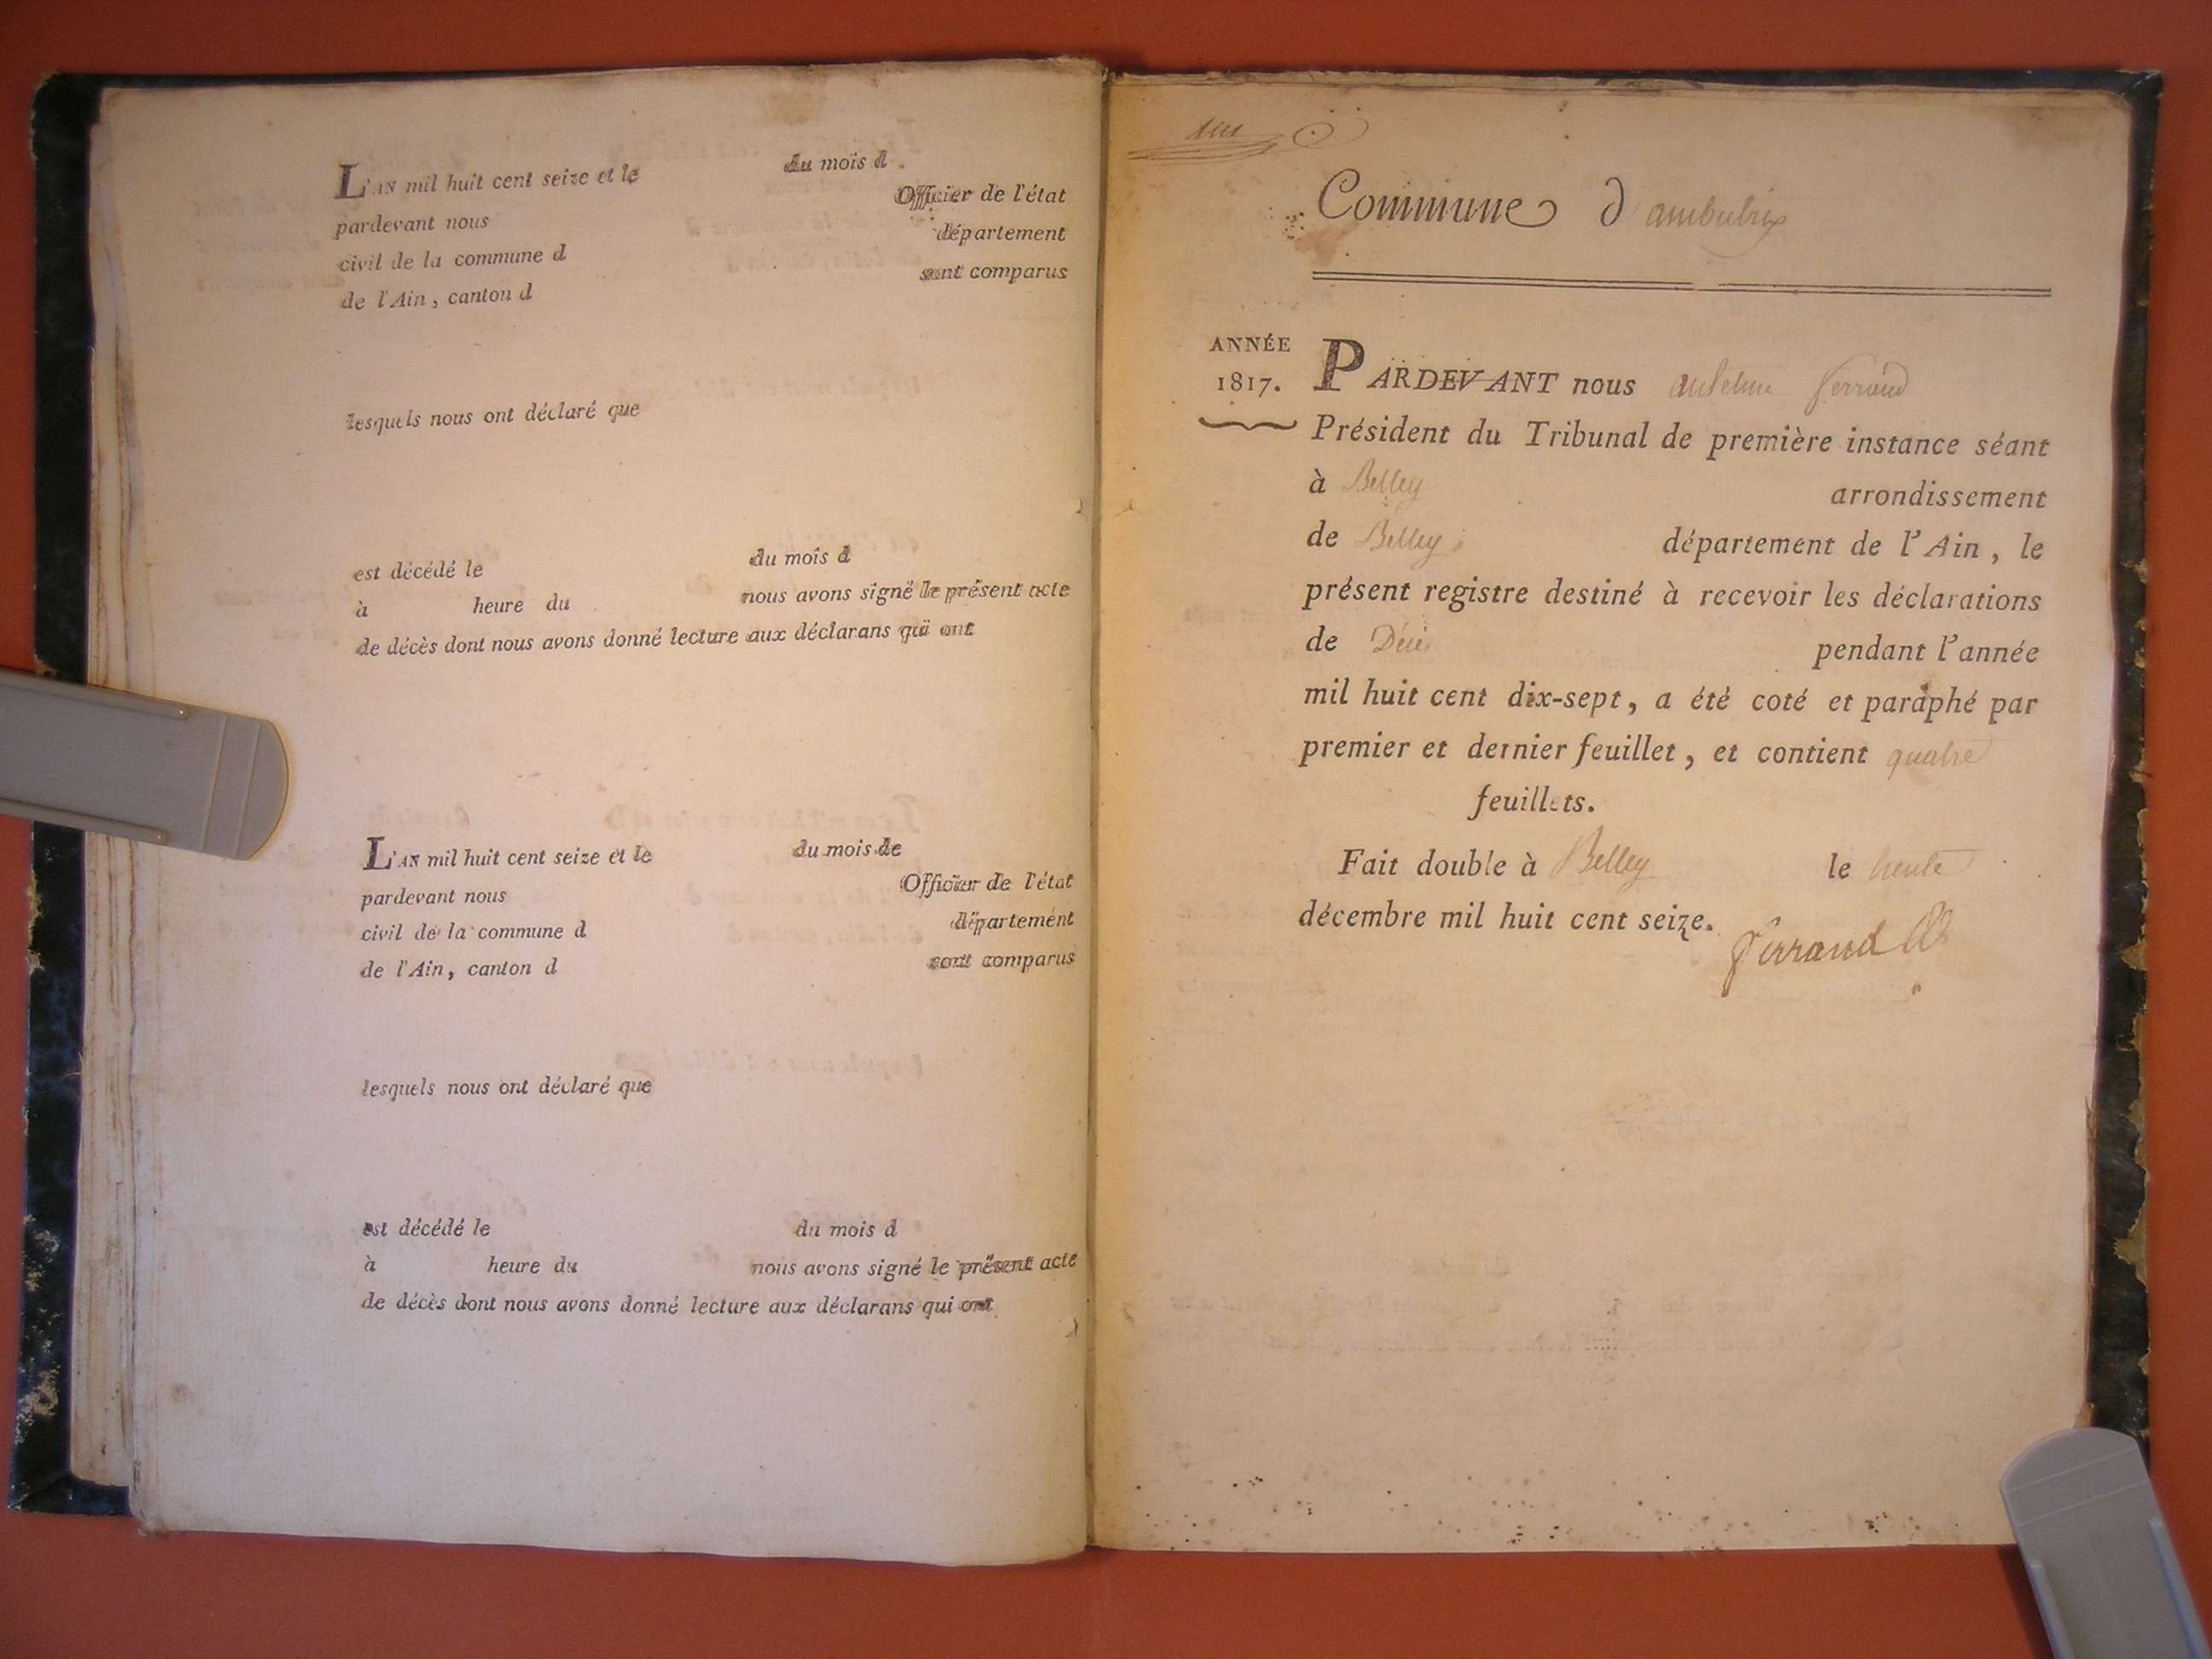 L'AN mil huit cent seize et le du mois d
pardevant nous Officier de l'état
civil de la commune d département
de l'Ain, canton d sont comparus
lesquels nous ont déclaré que
est décédé le du mois d
à heure du nous avons signé le présent acte
de décès dont nous avons donné lecture aux déclarans qui ont
L'AN mil huit cent seize et le du mois de
pardevant nous Officier de l'état
civil de la commune d département
de l'Ain, canton d sont comparus
lesquels nous ont déclaré que
est décédé le du mois d
à heure du nous avons signé le présent acte
de décès dont nous avons donné lecture aux déclarans qui ont
Commune d ambutrix
ANNÉE
1817.
PARDEVANT nous anselme ferrand
Président du Tribunal de première instance séant
à Belley arrondissement
de Belley département de l'Ain, le
présent registre destiné à recevoir les déclarations
de Décès pendant l'année
mil huit cent dix-sept, a été coté et paraphé par
premier et dernier feuillet, et contient quatre
feuillets.
Fait double à Belley le trente
décembre mil huit cent seize.
ferrand